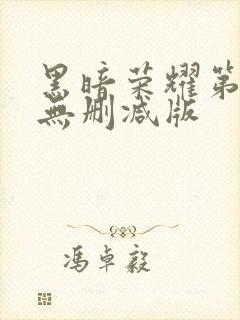 黑暗荣耀第
無删减版
冯卓毅